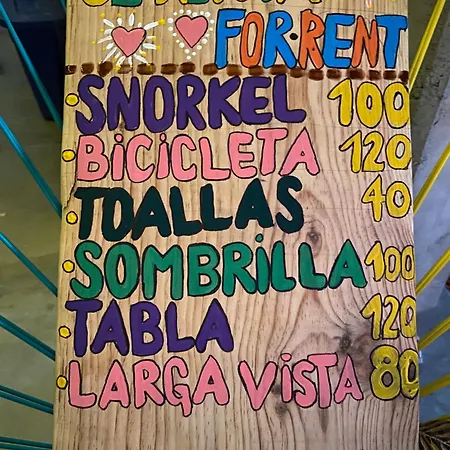 FOR·RENT
SNORKEL 100
BICICLETA 120
TOALLAS 40
SOMBRILLA 100
TABLA 120
LARGA VISTA 80